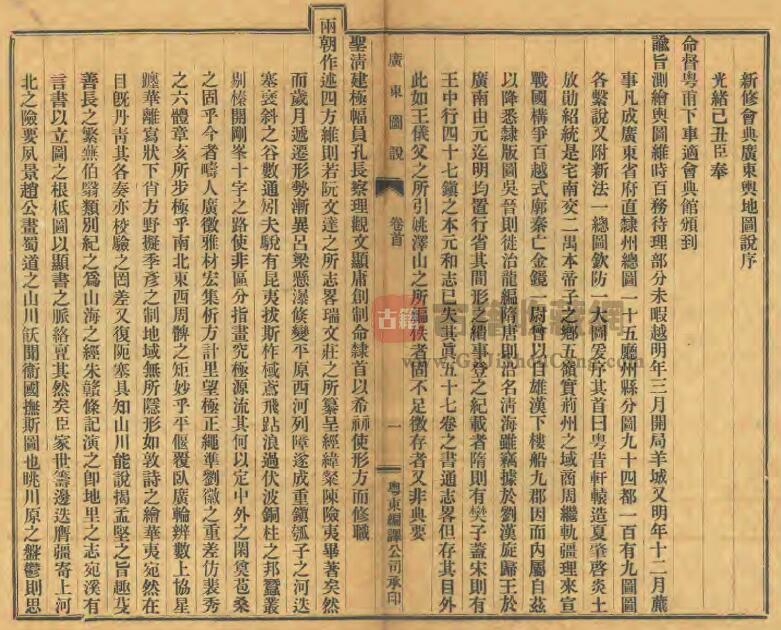 新修會典廣東輿地圖說序
光緒己丑臣奉
命督粵甫下車適會典館頒到
諭旨測繪輿圖維時百務待理部分未暇越明年三月開局羊城又明年十二月蕆
事凡成廣東省府直隸州總圖一十五廳州縣分圖九十四都一百有九圖圖
各繫說又附新法一總圖欽防 大圖爰序其首曰粵昔軒轅造夏肇啓炎土
放勛紹統是宅南交二禺本帝子之鄉五嶺實荊州之域商周繼軌疆理來宣
戰國構爭百越式廓秦亡金鏡 尉曾以自雄漢下樓船九郡因而內屬自茲
以降悉隸版圖吳晉則徙治龍編隋唐則治名淸海雖竊據於劉漢旋歸王於
廣南由元迄明均置行省其間形之繪事登之紀載者隋則有樊子蓋宋則有
王中行四十七鎭之本元和志已失其眞五十七卷之書通志畧但存其目外
此如王儀父之所引姚澤山之所編佚者固不足徵存者又非典要
廣東圖說
卷首
一
粵東編譯公司承印
聖淸建極幅員孔長察理觀文顯庸創制命隸首以希祘使形方而修職
兩朝作述四方維則若阮文達之所志畧瑞文莊之所纂呈經緯粲陳險夷畢著矣然
而歲月遞遷形勢漸異呂梁懸瀑倏變平原西河列障遂成重鎭瓠子之河迭
塞褒斜之谷數通矧夫駾有昆夷拔斯柞棫鳶飛跕浪過伏波銅柱之邦蠶叢
剔榛開剛峯十字之路使非區分指畫究極源流其何以定中外之閑奠苞桑
之固乎今者疇人廣徵雅材宏集析方計里望極正繩準劉徽之重差仿裴秀
之六體章亥所步極乎南北東西周髀之矩妙乎平偃覆臥廣輪辨數上協星
躔華離寫狀下肖方野擬季彥之制地域無所隱形如敦詩之繪華夷宛然在
目旣丹靑其各奏亦校驗之罔差又復阨塞具知山川能說揭孟堅之旨趣芟
善長之繁蕪伯翳類別紀之爲山海之經朱贛條記演之卽地里之志宛溪有
言書以立圖之根柢圖以顯書之脈絡覽其然矣臣家世籌邊迭膺疆寄上河
北之險要夙景趙公畫蜀道之山川飫聞衞國撫斯圖也眺川原之盤鬱則思